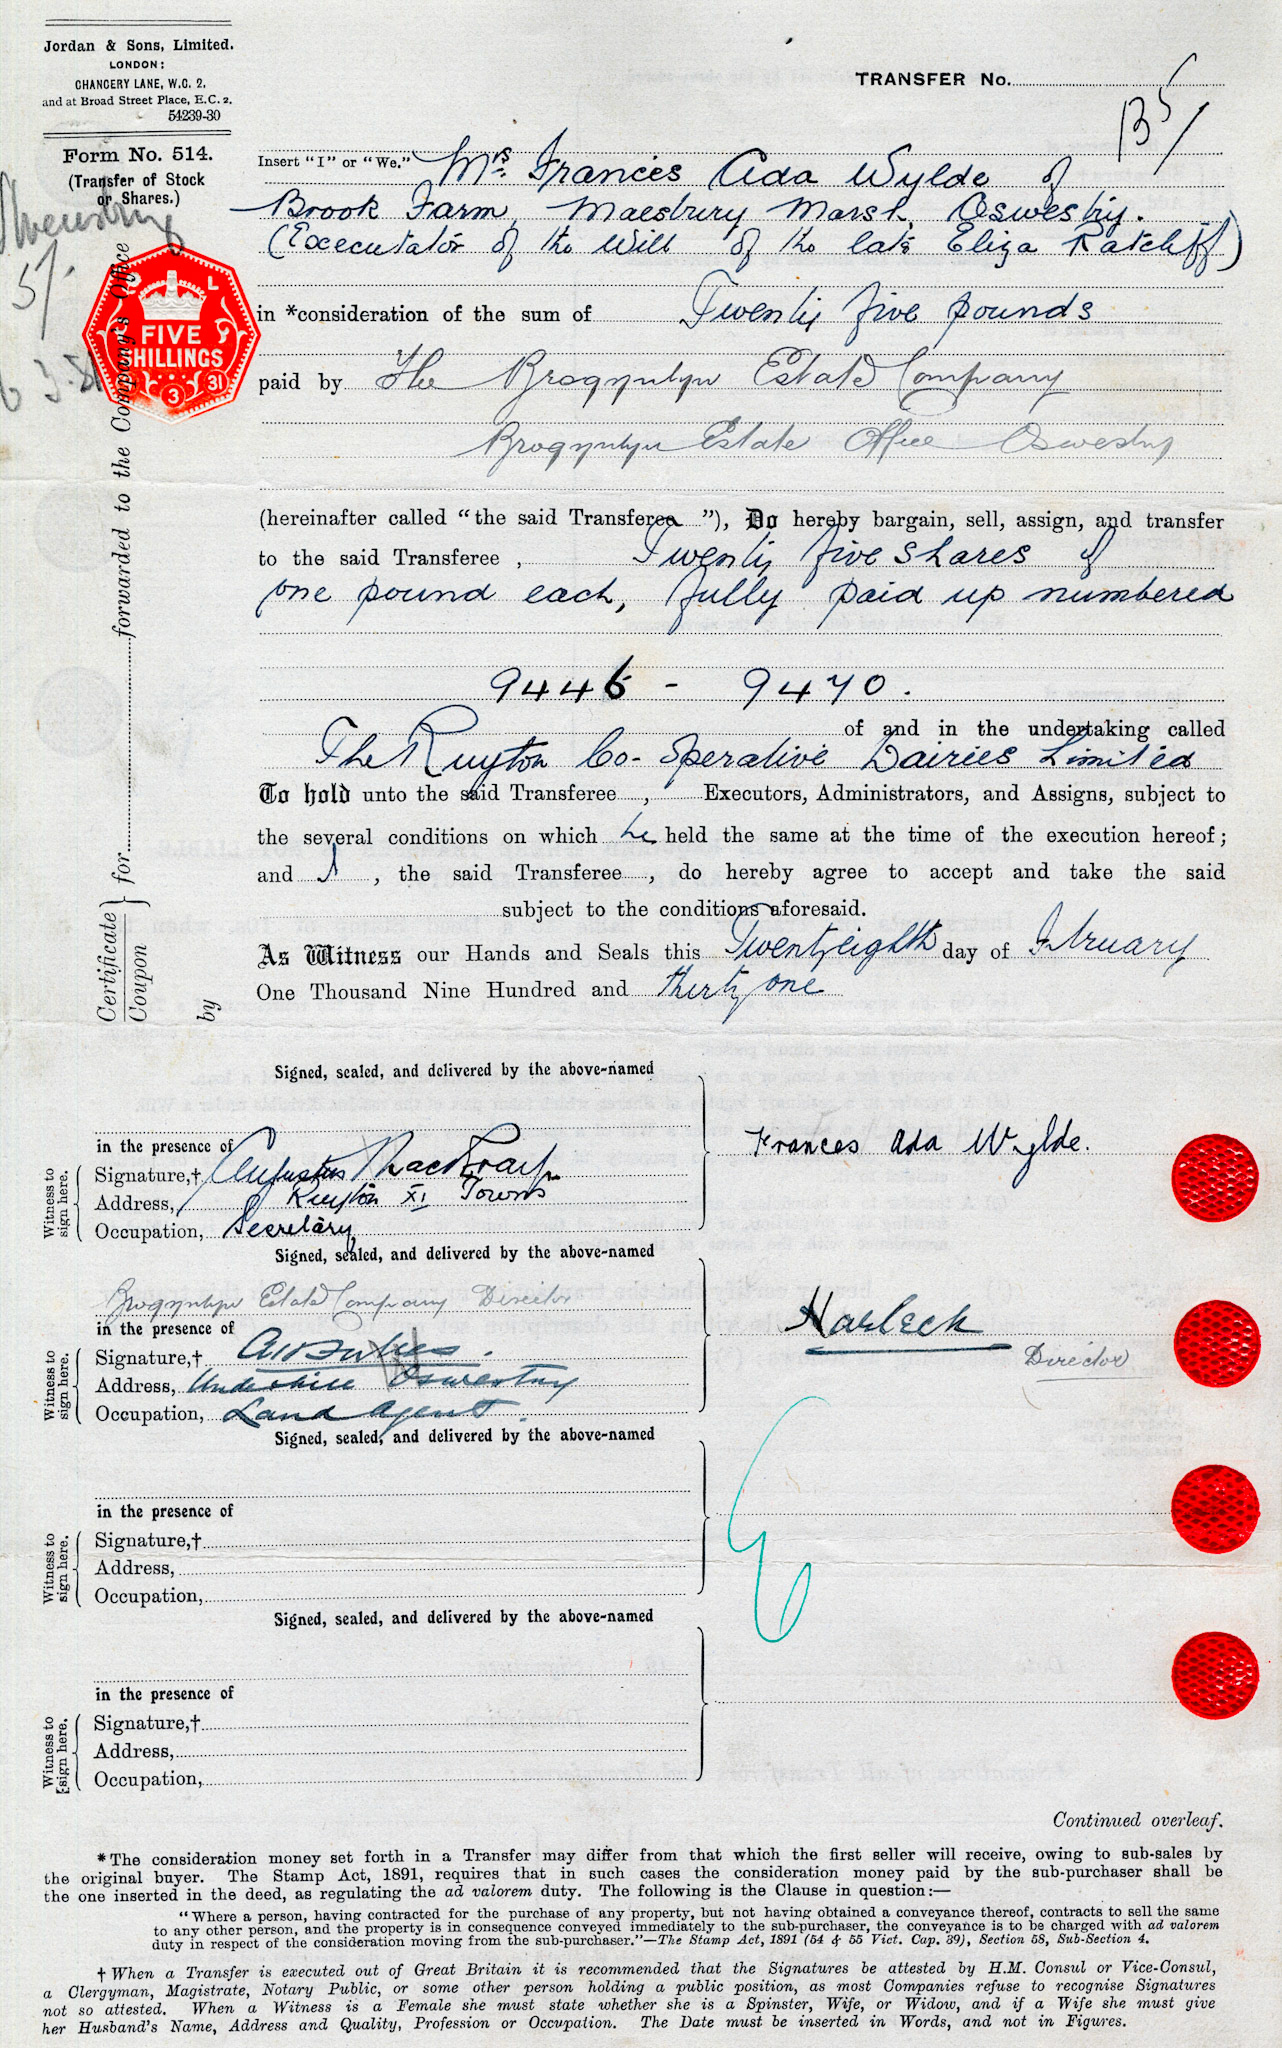 Jordan & Sons, Limited.
LONDON:
CHANCERY LANE, W.C. 2,
and at Broad Street Place, E.C. 2.
54239-30
Form No. 514.
(Transfer of Stock
or Shares.)
Shrewsbury
5/-
FIVE
SHILLINGS
3
31
TRANSFER No.
B5/
Insert "I" or "We." Mrs. Frances Ada Wylde of
Brook Farm, Maesbury Marsh, Oswestry.
(Executator of the Will of the late Eliza Ratcliff)
in *consideration of the sum of Twenty five pounds
paid by The Brogyntyn Estate Company
Brogyntyn Estate Office Oswestry
(hereinafter called "the said Transferee "), Do hereby bargain, sell, assign, and transfer
to the said Transferee , Twenty five shares of
one pound each, fully paid up numbered
9446 - 9470.
of and in the undertaking called
The Ruyton Co-operative Dairies Limited
To hold unto the said Transferee , Executors, Administrators, and Assigns, subject to
the several conditions on which he held the same at the time of the execution hereof;
and I , the said Transferee , do hereby agree to accept and take the said
subject to the conditions aforesaid.
As Witness our Hands and Seals this Twentyeighth day of February
One Thousand Nine Hundred and thirty one
Certificate
Coupon } for forwarded to the Company's Office
by
Signed, sealed, and delivered by the above-named
in the presence of
Frances Ada Wylde.
Witness to
sign here.
Signature,† Augustus
Address, Ruyton XI Towns
Occupation, Secretary
Signed, sealed, and delivered by the above-named
Brogyntyn Estate Company Director
in the presence of
Harlech
Director
Witness to
sign here.
Signature,†
Address, Underhill Oswestry
Occupation, Land Agent.
Signed, sealed, and delivered by the above-named
in the presence of
Witness to
sign here.
Signature,†
Address,
Occupation,
Signed, sealed, and delivered by the above-named
in the presence of
Witness to
sign here.
Signature,†
Address,
Occupation,
Continued overleaf.
*The consideration money set forth in a Transfer may differ from that which the first seller will receive, owing to sub-sales by
the original buyer. The Stamp Act, 1891, requires that in such cases the consideration money paid by the sub-purchaser shall be
the one inserted in the deed, as regulating the ad valorem duty. The following is the Clause in question:—
"Where a person, having contracted for the purchase of any property, but not having obtained a conveyance thereof, contracts to sell the same
to any other person, and the property is in consequence conveyed immediately to the sub-purchaser, the conveyance is to be charged with ad valorem
duty in respect of the consideration moving from the sub-purchaser."—The Stamp Act, 1891 (54 & 55 Vict. Cap. 39), Section 58, Sub-Section 4.
† When a Transfer is executed out of Great Britain it is recommended that the Signatures be attested by H.M. Consul or Vice-Consul,
a Clergyman, Magistrate, Notary Public, or some other person holding a public position, as most Companies refuse to recognise Signatures
not so attested. When a Witness is a Female she must state whether she is a Spinster, Wife, or Widow, and if a Wife she must give
her Husband's Name, Address and Quality, Profession or Occupation. The Date must be inserted in Words, and not in Figures.